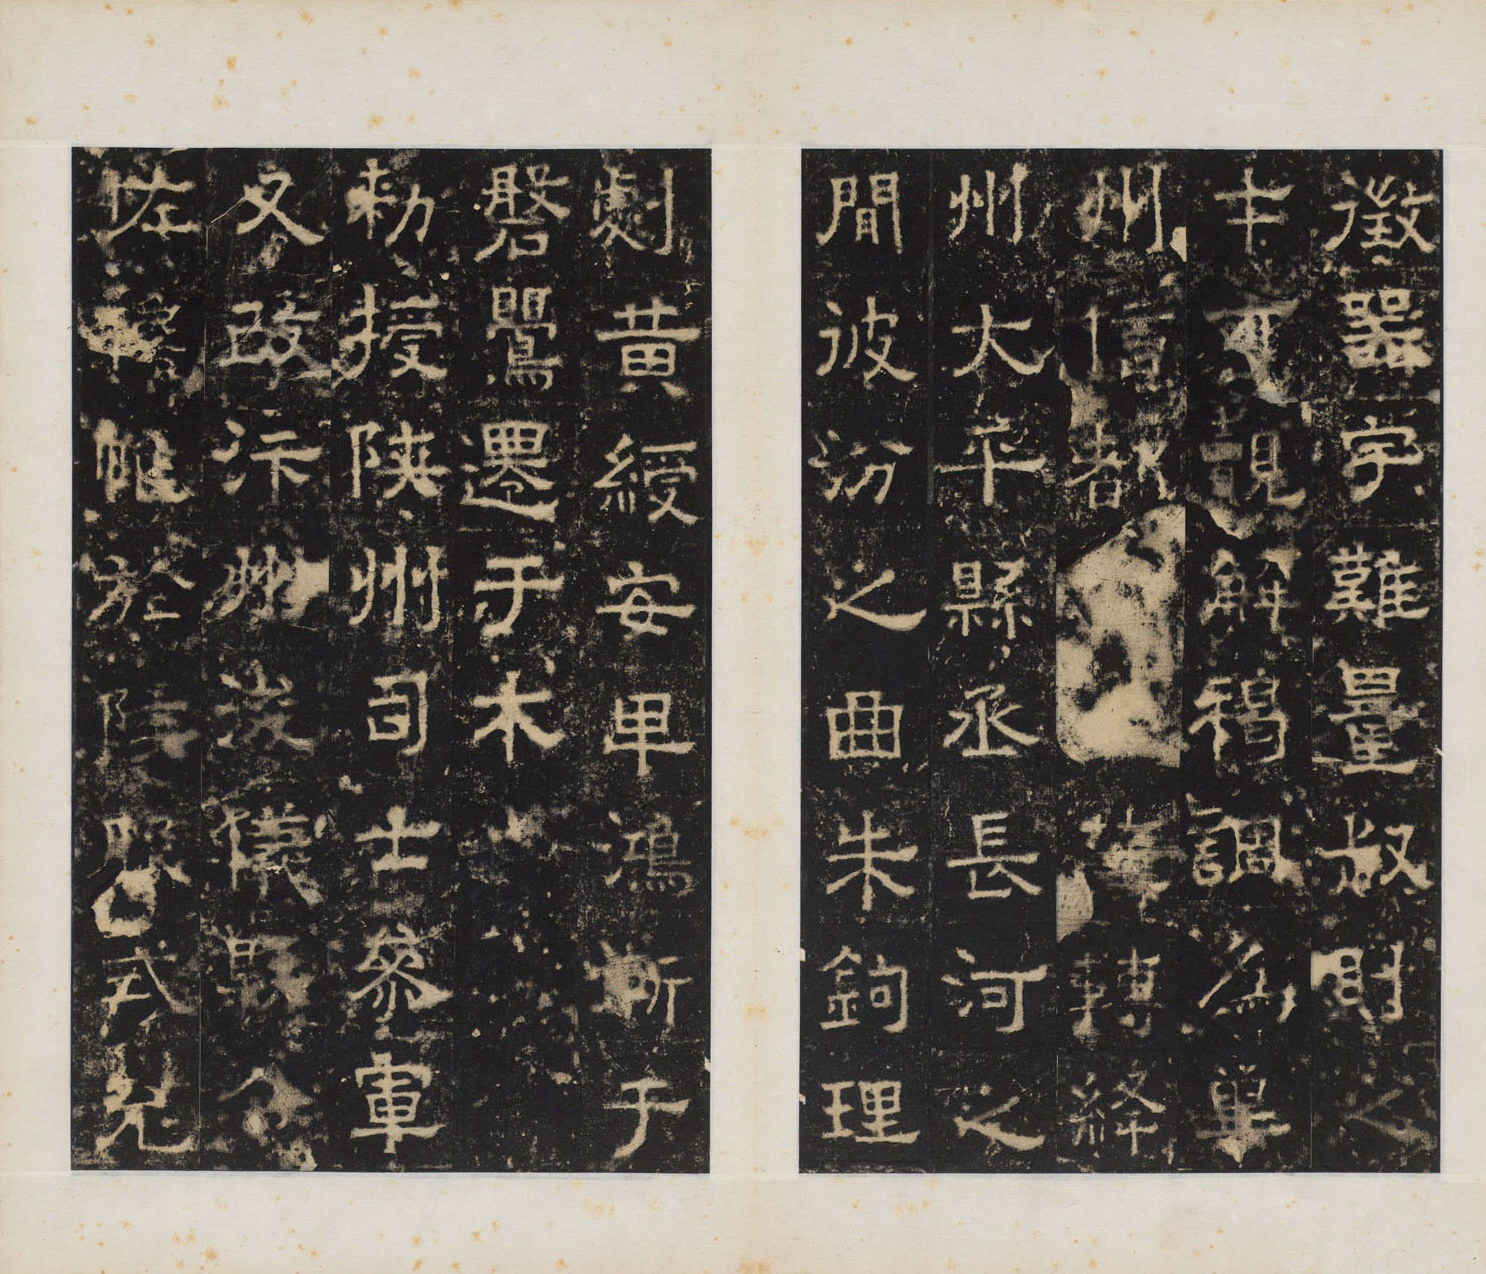 徵器宇難量叔則之
牛可觀解褐調為單
州信都轉絳
州大平縣丞長河之
間彼汾之曲朱鉤理
劇黃綬安卑鴻漸于
磐鸎遷于木
勑授陝州司士參軍
又改汴州浚儀縣令
佐帷於陝服式光